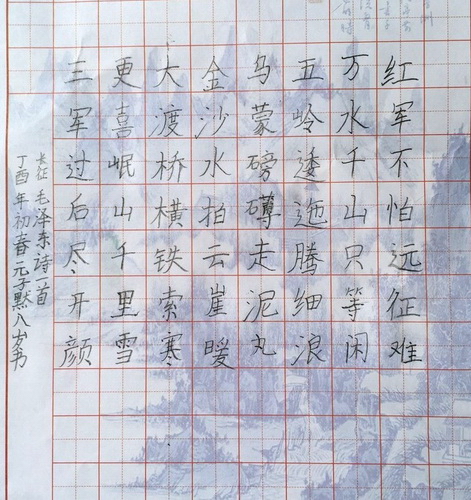 红军不怕远征难
万水千山只等闲
五岭逶迤腾细浪
乌蒙磅礴走泥丸
金沙水拍云崖暖
大渡桥横铁索寒
更喜岷山千里雪
三军过后尽开颜
长征毛泽东诗首
丁酉年初春元子默八岁书